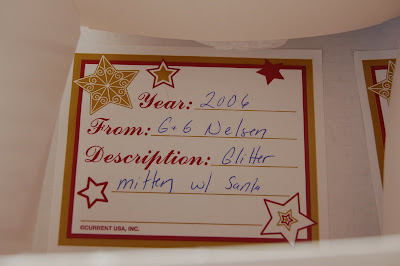 Year: 2006
From: G+G Nelsen
Description: Glitter
mitten w/ Santa
©CURRENT USA, INC.